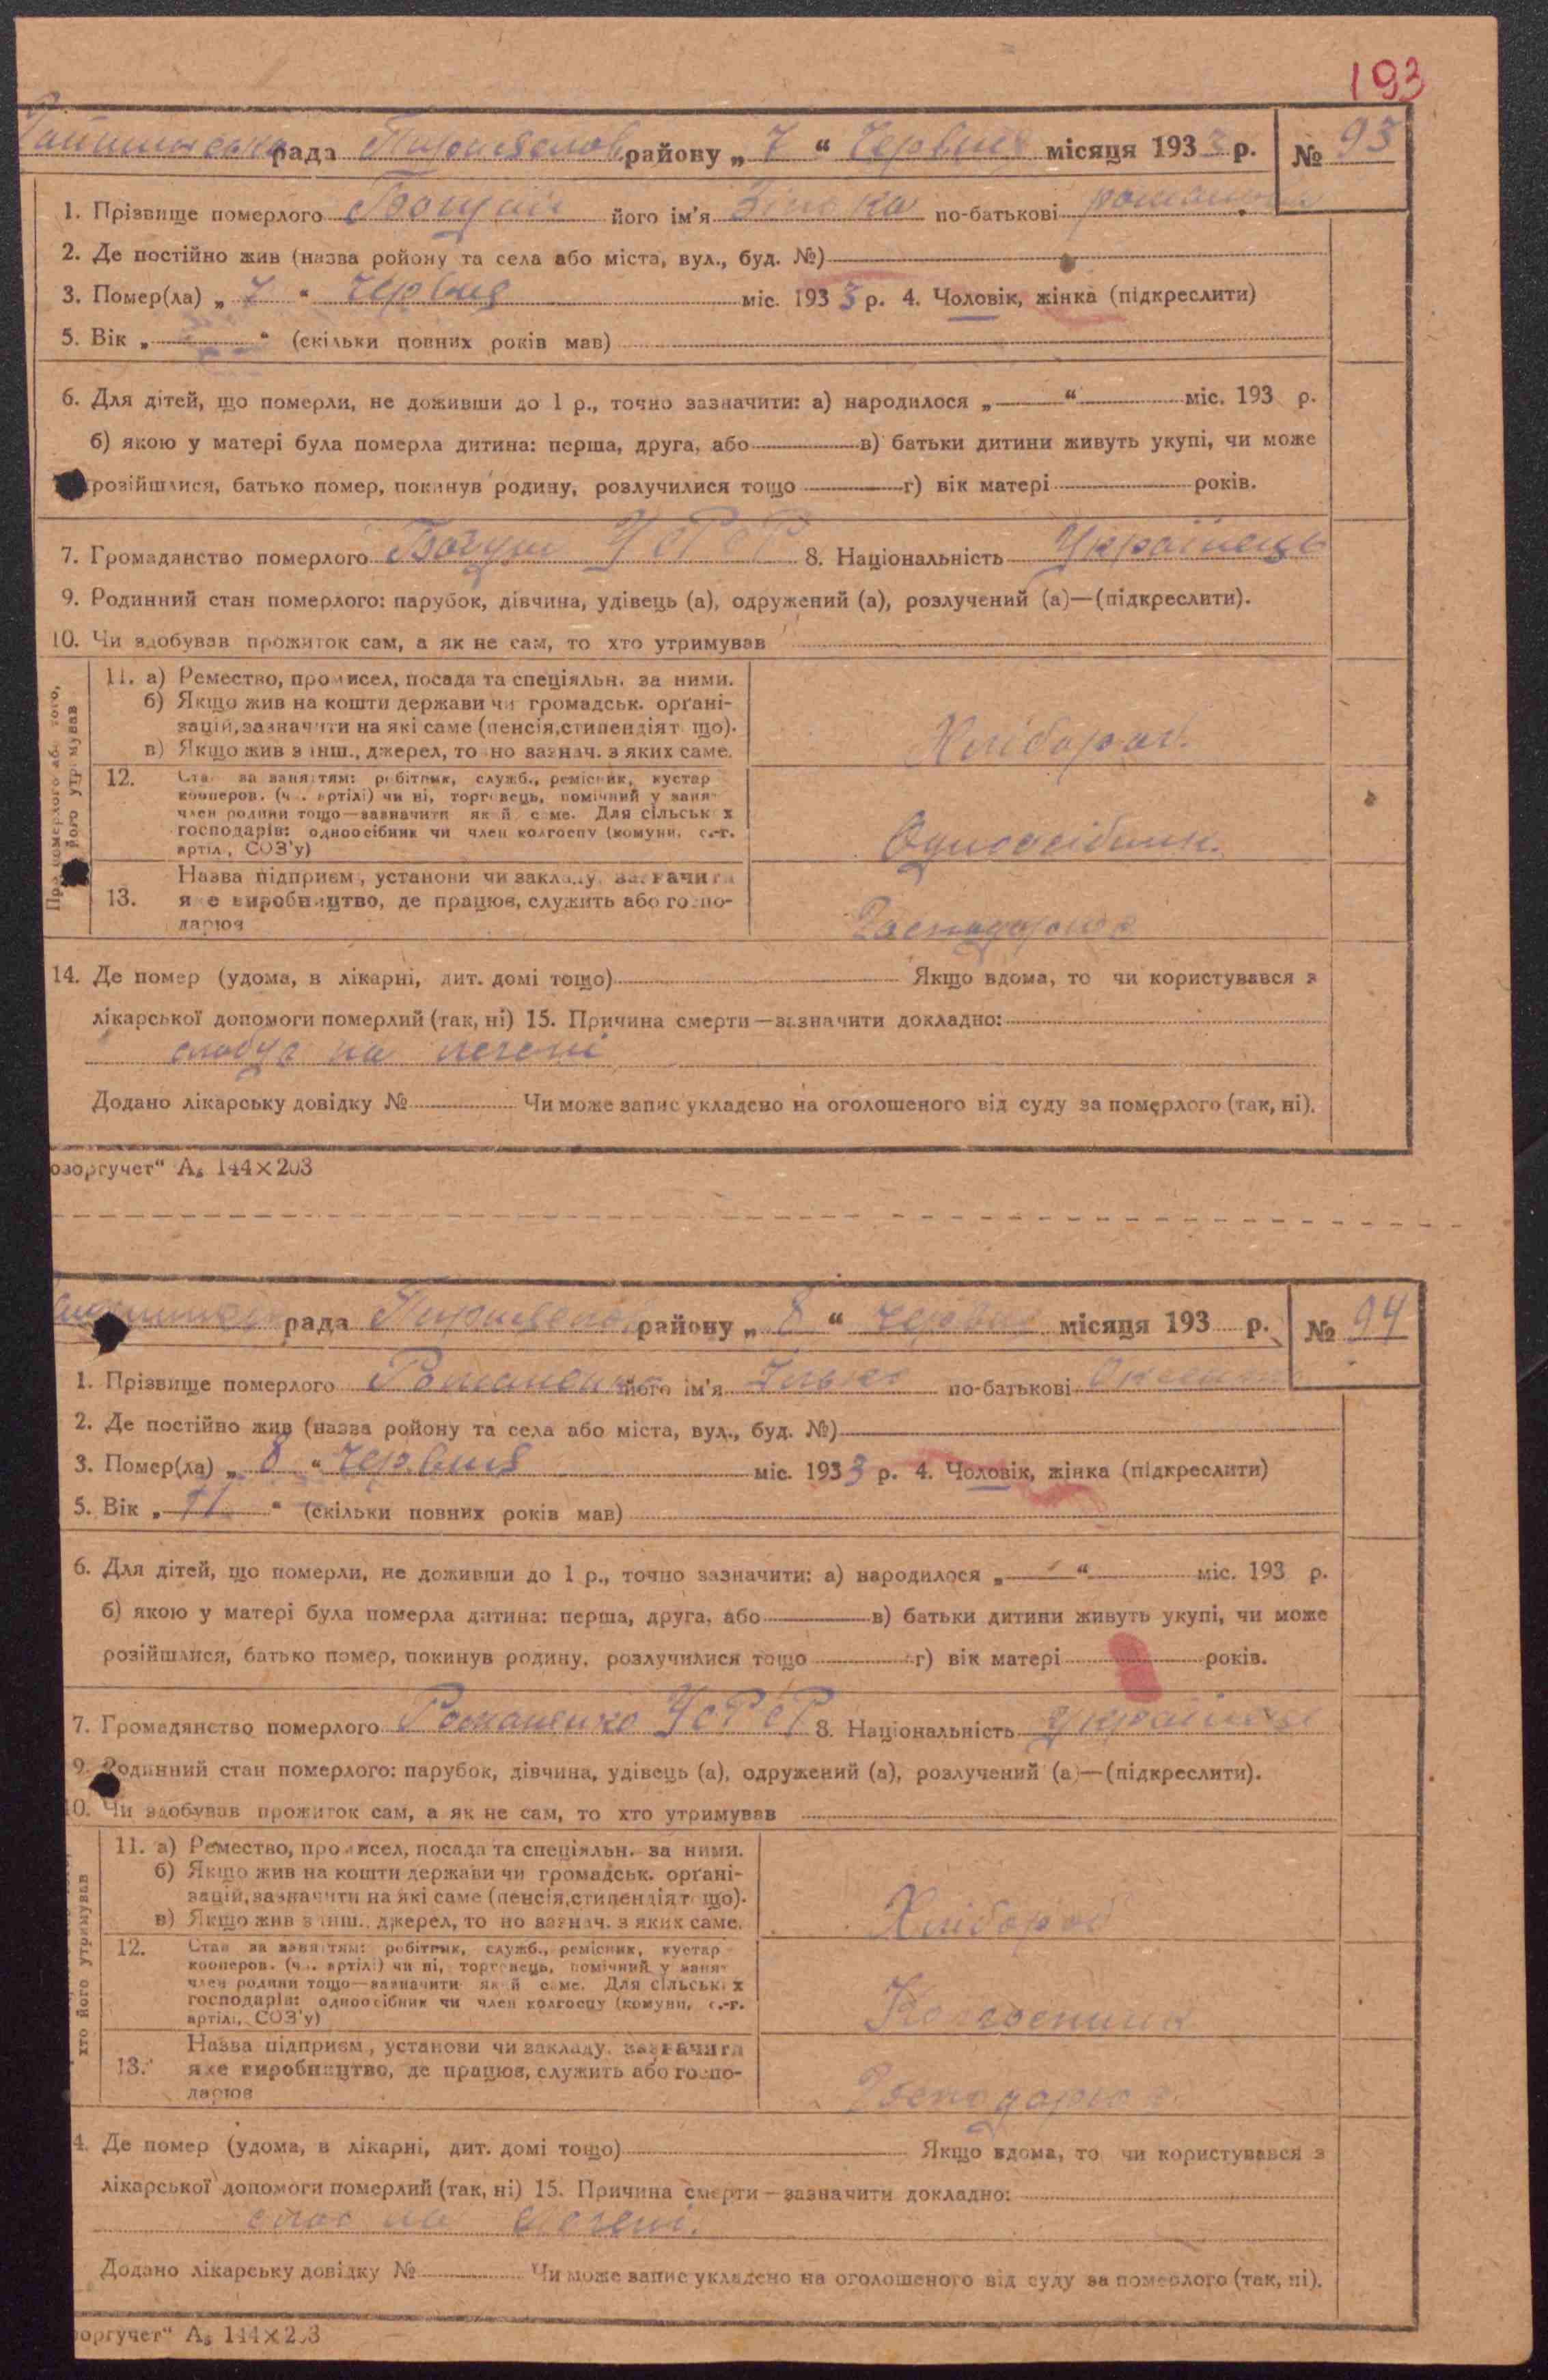 193
рада райову „ 7 “ Червня місяця 1933 р. № 93
1. Прізвище померлого його ім'я по-батькові
2. Де постійно жив (назва ройону та села або міста, вул., буд. №)
3. Помер(ла) „ 7 “ Червня міс. 1933 р. 4. Чоловік, жінка (підкреслити)
5. Вік „ “ (скільки повних років мав)
6. Для дітей, що померли, не доживши до 1 р., точно зазначити: а) народилося „ “ міс. 193 р.
б) якою у матері була померла дитина: перша, друга, або в) батьки дитини живуть укупі, чи може
розійшлися, батько помер, покинув родину, розлучилися тощо г) вік матері років.
7. Громадянство померлого УСРР 8. Національність Українець
9. Родинний стан померлого: парубок, дівчина, удівець (а), одружений (а), розлучений (а)—(підкреслити).
10. Чи здобував прожиток сам, а як не сам, то хто утримував
11. а) Ремество, промисел, посада та спеціяльн. за ними.
б) Якщо жив на кошти держави чи громадськ. орґані-
зацій, зазначити на які саме (пенсія, стипендія т що).
в) Якщо жив з інш., джерел, то но зазнач. з яких саме.
Хлібороб.
12. Ста за занятям: робітник, служб., ремісник, кустар
кооперов. (ч. артілі) чи ні, торговець, помічний у заня-
член родини тощо—зазначити який саме. Для сільських
господарів: одноосібник чи член колгоспу (комуни, с.-г.
артіл, СОЗ'у)
Одноосібник.
13. Назва підприєм, установи чи закладу, зазначити
яке виробництво, де працюв, служить або госпо-
дарюв
14. Де помер (удома, в лікарні, дит. домі тощо) Якщо вдома, то чи користувався з
лікарської допомоги померлий (так, ні) 15. Причина смерти—зазначити докладно:
Додано лікарську довідку № Чи може запис укладено на оголошеного від суду за померлого (так, ні).
озоргучет“ А₅ 144×203
рада райову „ 8 “ Червня місяця 193 р. № 94
1. Прізвище померлого Романенко його ім'я по-батькові
2. Де постійно жив (назва ройону та села або міста, вул., буд. №)
3. Помер(ла) „ 8 “ Червня міс. 1933 р. 4. Чоловік, жінка (підкреслити)
5. Вік „ “ (скільки повних років мав)
6. Для дітей, що померли, не доживши до 1 р., точно зазначити: а) народилося „ “ міс. 193 р.
б) якою у матері була померла дитина: перша, друга, або в) батьки дитини живуть укупі, чи може
розійшлися, батько помер, покинув родину, розлучилися тощо г) вік матері років.
7. Громадянство померлого Романенко УСРР 8. Національність Українець
9. Родинний стан померлого: парубок, дівчина, удівець (а), одружений (а), розлучений (а)—(підкреслити).
10. Чи здобував прожиток сам, а як не сам, то хто утримував
хто його утримував
11. а) Ремество, промисел, посада та спеціяльн. за ними.
б) Якщо жив на кошти держави чи громадськ. орґані-
зацій, зазначити на які саме (пенсія, стипендія т що).
в) Якщо жив з інш., джерел, то но зазнач. з яких саме.
Хлібороб
12. Стан за занятям: робітник, служб., ремісник, кустар
кооперов. (ч. артілі) чи ні, торговець, помічний у заня-
член родини тощо—зазначити який саме. Для сільських
господарів: одноосібник чи член колгоспу (комуни, с.-г.
артілі, СОЗ'у)
Колгоспник
13. Назва підприєм, установи чи закладу, зазначити
яке виробництво, де працюв, служить або госпо-
дарюв
4. Де помер (удома, в лікарні, дит. домі тощо) Якщо вдома, то чи користувався з
лікарської допомоги померлий (так, ні) 15. Причина смерти—зазначити докладно:
Додано лікарську довідку № Чи може запис укладено на оголошеного від суду за померлого (так, ні).
оргучет“ А₅ 144×203